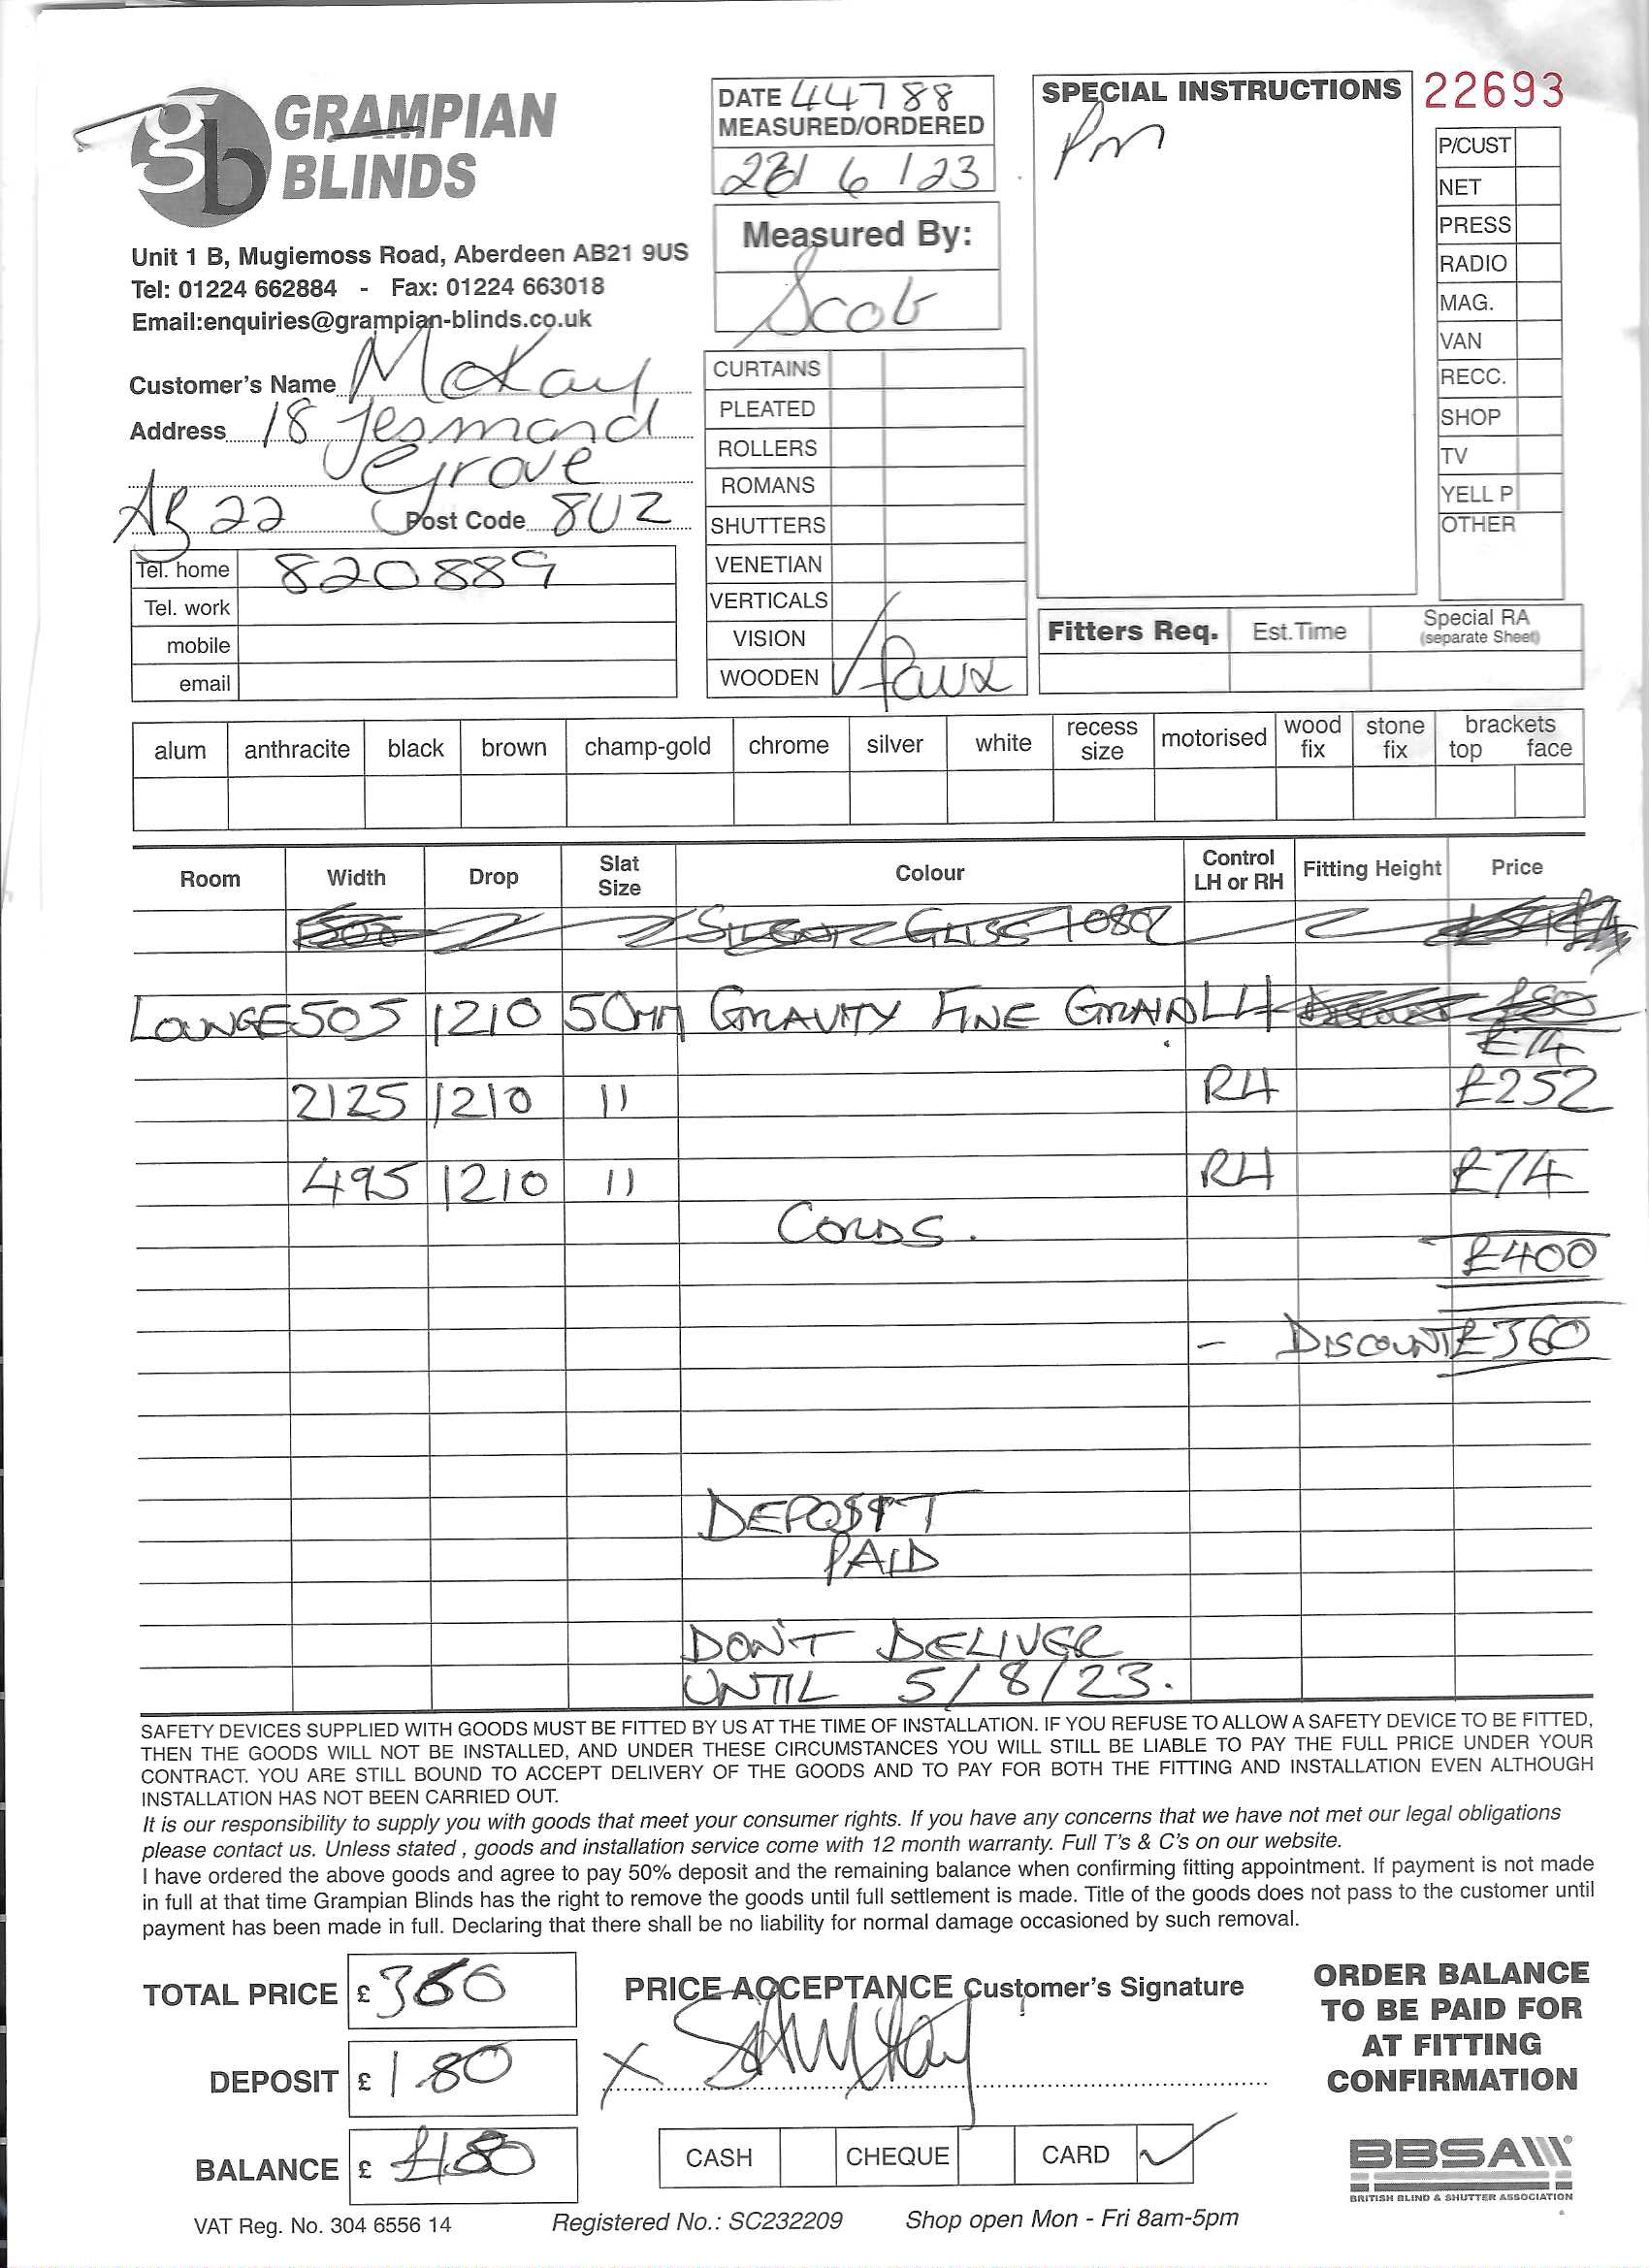 gb GRAMPIAN
BLINDS
Unit 1 B, Mugiemoss Road, Aberdeen AB21 9US
Tel: 01224 662884 - Fax: 01224 663018
Email:enquiries@grampian-blinds.co.uk
Customer's Name McKay
Address 18 Jesmond
Grove
AB22 Post Code 8UZ
Tel. home 820889
Tel. work
mobile
email
DATE 44788
MEASURED/ORDERED
/ 6 / 23
Measured By:
Scob
CURTAINS
PLEATED
ROLLERS
ROMANS
SHUTTERS
VENETIAN
VERTICALS
VISION
WOODEN ✓ faux
SPECIAL INSTRUCTIONS
Pm
22693
P/CUST
NET
PRESS
RADIO
MAG.
VAN
RECC.
SHOP
TV
YELL P
OTHER
Fitters Req. Est.Time Special RA
(separate Sheet)
alum anthracite black brown champ-gold chrome silver white recess size motorised wood fix stone fix brackets top face
Room Width Drop Slat Size Colour Control LH or RH Fitting Height Price
LOUNGE 505 1210 50mm GRAVITY FINE GRAIN LH £74
2125 1210 11 RH £252
495 1210 11 RH £74
CORDS.
£400
- DISCOUNT £360
DEPOSIT
PAID
DON'T DELIVER
UNTIL 5/8/23.
SAFETY DEVICES SUPPLIED WITH GOODS MUST BE FITTED BY US AT THE TIME OF INSTALLATION. IF YOU REFUSE TO ALLOW A SAFETY DEVICE TO BE FITTED,
THEN THE GOODS WILL NOT BE INSTALLED, AND UNDER THESE CIRCUMSTANCES YOU WILL STILL BE LIABLE TO PAY THE FULL PRICE UNDER YOUR
CONTRACT. YOU ARE STILL BOUND TO ACCEPT DELIVERY OF THE GOODS AND TO PAY FOR BOTH THE FITTING AND INSTALLATION EVEN ALTHOUGH
INSTALLATION HAS NOT BEEN CARRIED OUT.
It is our responsibility to supply you with goods that meet your consumer rights. If you have any concerns that we have not met our legal obligations
please contact us. Unless stated , goods and installation service come with 12 month warranty. Full T's & C's on our website.
I have ordered the above goods and agree to pay 50% deposit and the remaining balance when confirming fitting appointment. If payment is not made
in full at that time Grampian Blinds has the right to remove the goods until full settlement is made. Title of the goods does not pass to the customer until
payment has been made in full. Declaring that there shall be no liability for normal damage occasioned by such removal.
TOTAL PRICE £ 360
DEPOSIT £ 180
BALANCE £ £180
PRICE ACCEPTANCE Customer's Signature
X
CASH CHEQUE CARD ✓
ORDER BALANCE
TO BE PAID FOR
AT FITTING
CONFIRMATION
BBSA
BRITISH BLIND & SHUTTER ASSOCIATION
VAT Reg. No. 304 6556 14 Registered No.: SC232209 Shop open Mon - Fri 8am-5pm